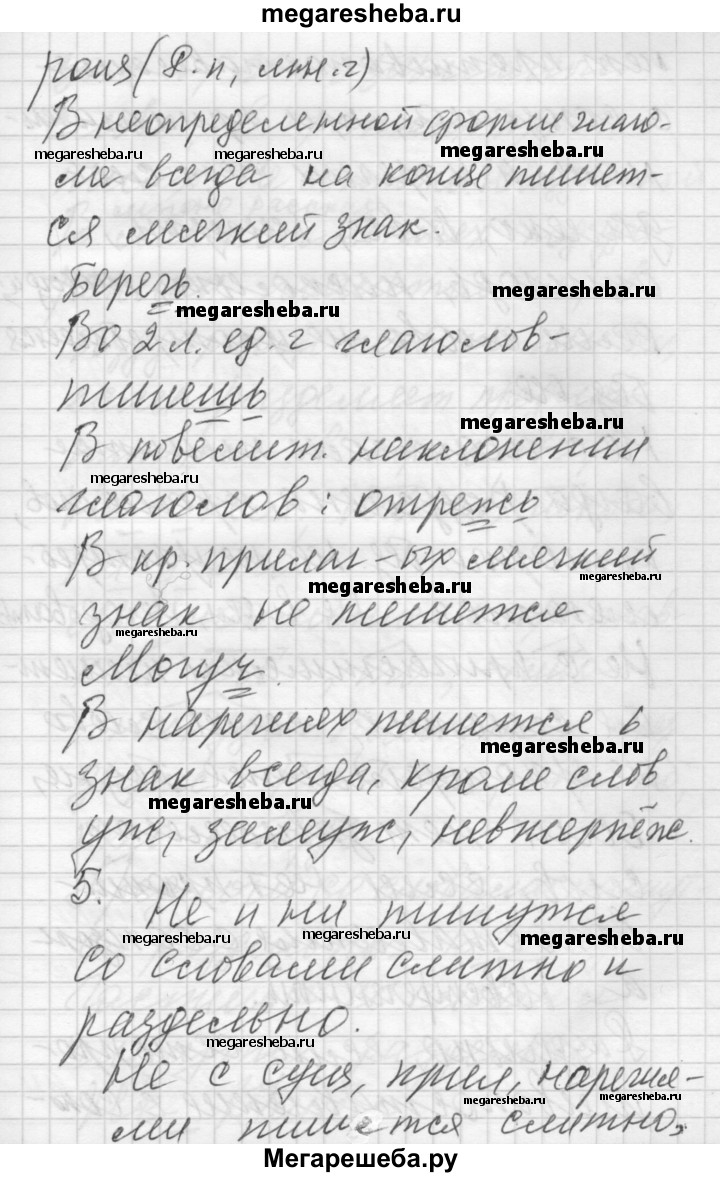 megaresheba.ru
рощ (Р.п, мн.ч)
В неопределенной форме глаго-
megaresheba.ru megaresheba.ru megaresheba.ru
ле всегда на конце пишет-
ся мягкий знак.
Беречь.
megaresheba.ru megaresheba.ru
Во 2 л. ед. ч глаголов-
пишешь
megaresheba.ru
В повелит. наклонении
megaresheba.ru
глаголов: отрежь
В кр. прилаг-ых мягкий
megaresheba.ru megaresheba.ru
знак не пишется
megaresheba.ru
Могуч.
В наречиях пишется ь
megaresheba.ru
знак всегда, кроме слов
megaresheba.ru
уж, замуж, невтерпёж.
5.
Не и ни пишутся
megaresheba.ru megaresheba.ru megaresheba.ru
со словами слитно и
раздельно.
megaresheba.ru
Не с сущ, прил, наречия-
megaresheba.ru megaresheba.ru
ми пишется слитно,
Мегарешеба.ру